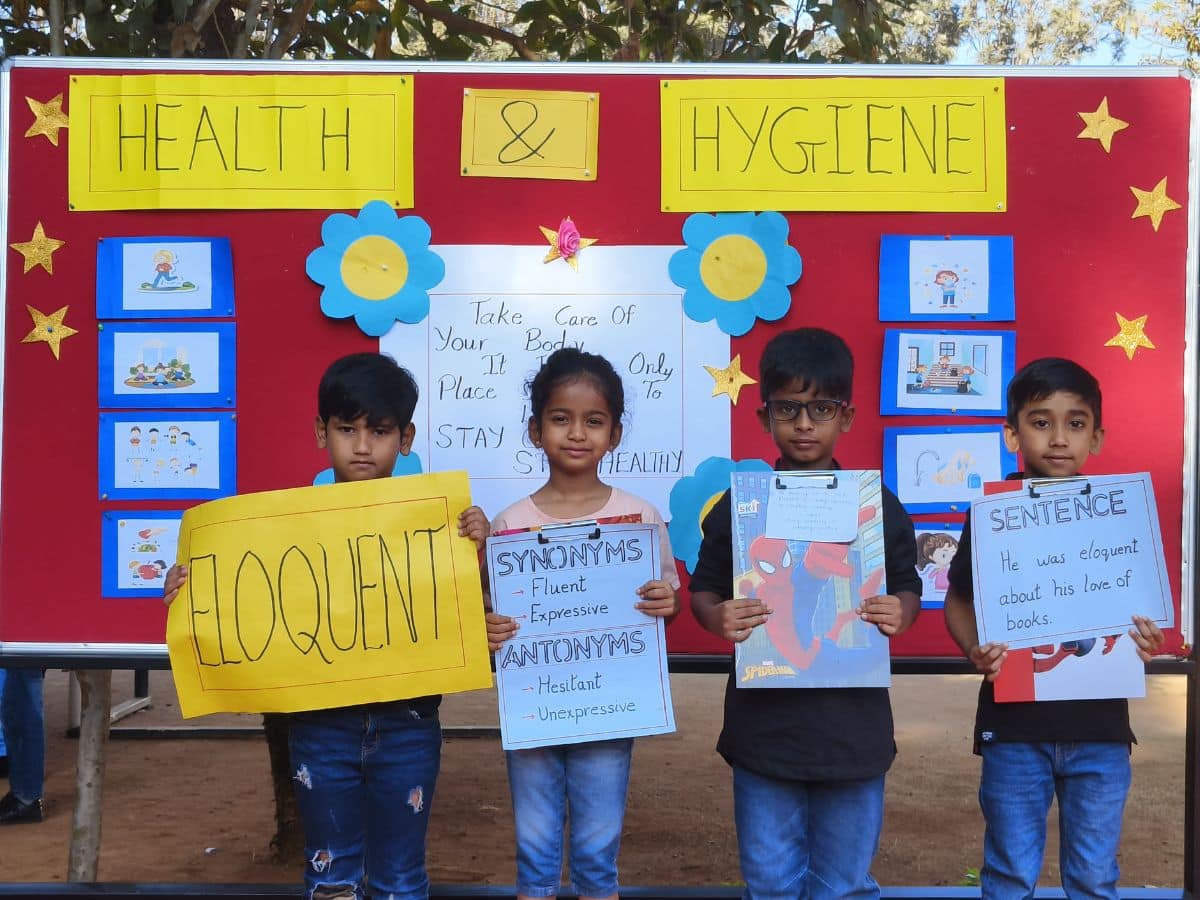 HEALTH & HYGIENE
Take Care Of
Your Body
It Only
Place To
STAY
HEALTHY
ELOQUENT
SYNONYMS
→ Fluent
→ Expressive
ANTONYMS
→ Hesitant
→ Unexpressive
SKI
SPIDER-MAN
SENTENCE
He was eloquent
about his love of
books.